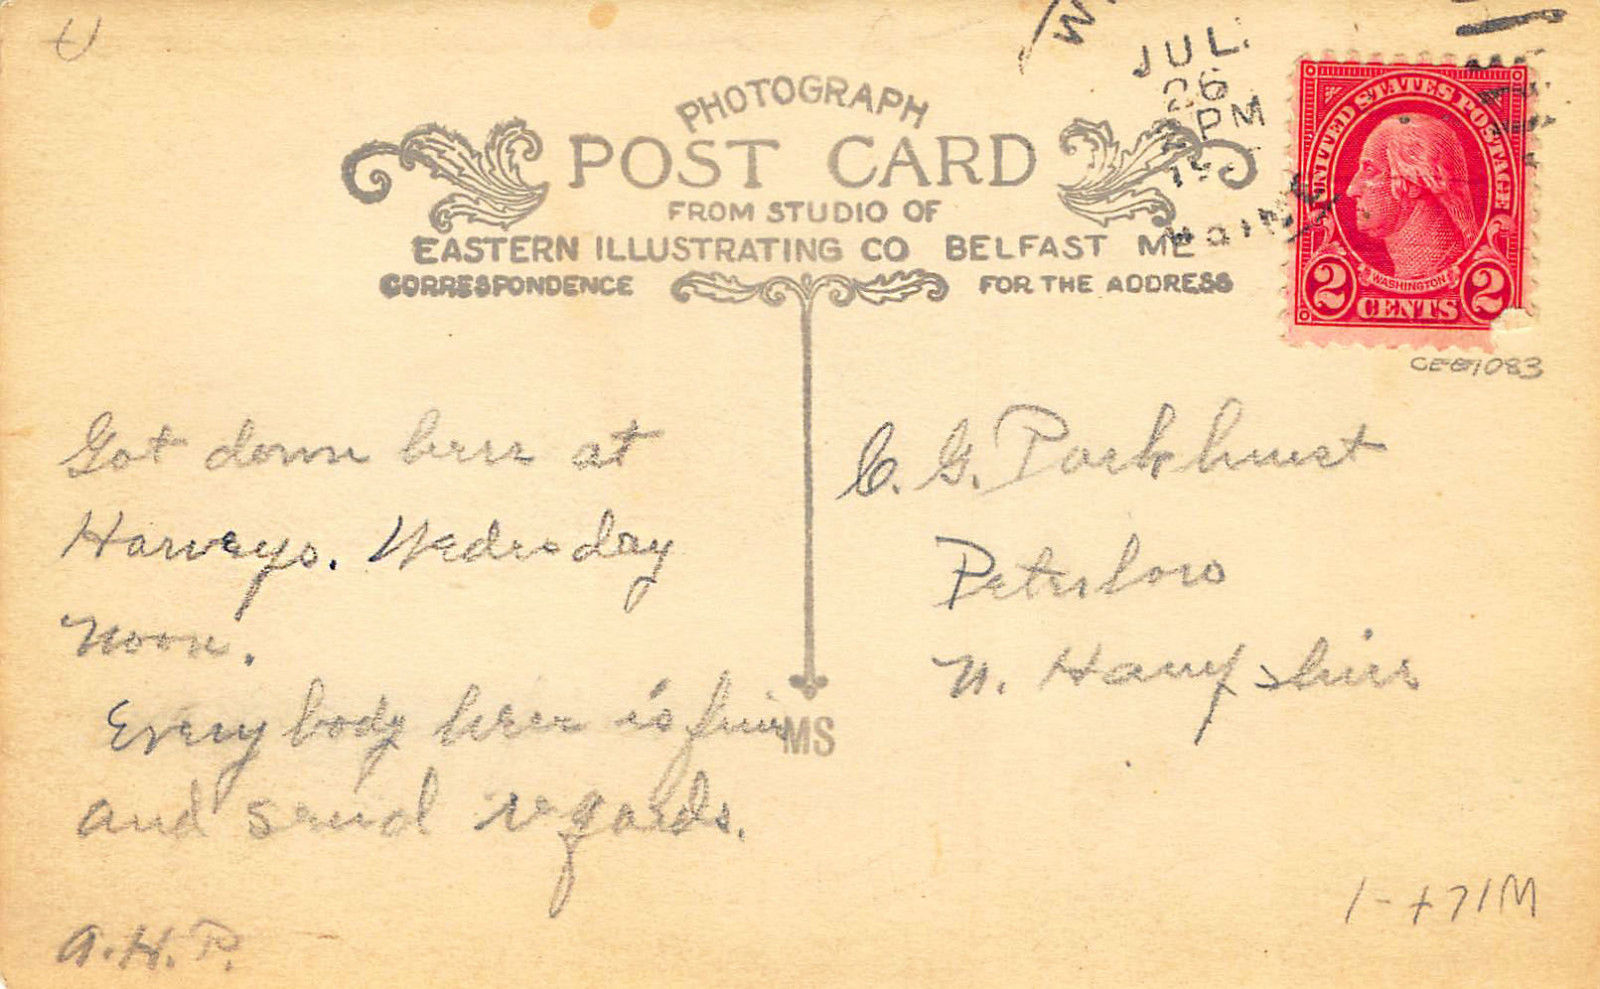 JUL.
26
PM
PHOTOGRAPH
POST CARD
FROM STUDIO OF
EASTERN ILLUSTRATING CO BELFAST ME
CORRESPONDENCE
FOR THE ADDRESS
UNITED STATES POSTAGE
WASHINGTON
2 CENTS 2
1083
Got down here at
Harveys. Wednesday
Noon.
Everybody here is fine
and send regards.
A.H.P.
MS
C. G. Parkhurst
Peterboro
N. Hampshire
71M